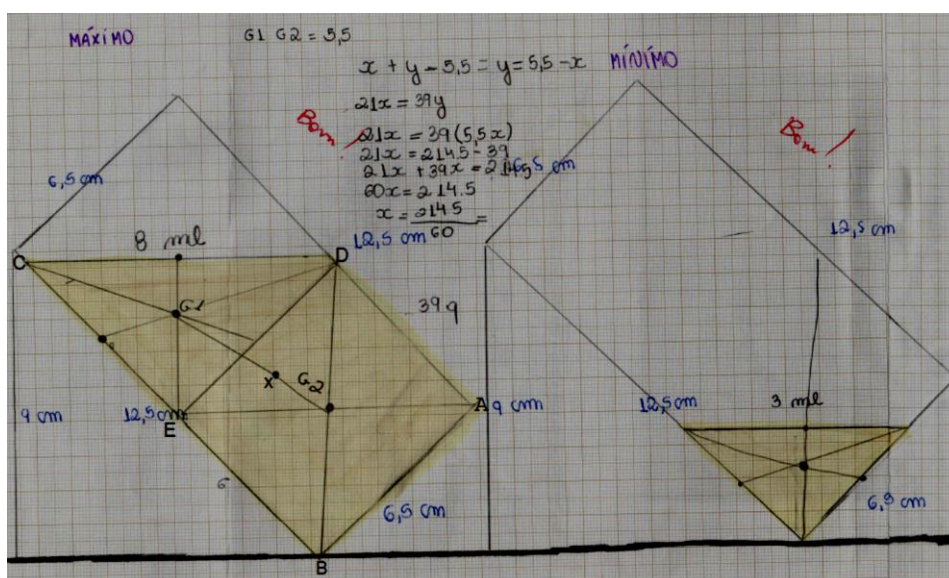 MÁXIMO
G1 G2 = 5,5
x + y - 5,5 = y = 5,5 - x
MÍNIMO
21x = 39y
Bom!
21x = 39(5,5x)
21x = 214.5 - 39
21x + 39x = 214,5
60x = 214.5
x = 214.5 =
60
Bom!
6,5 cm
6,5 cm
8 ml
12,5 cm
12,5 cm
C
D
G1
39 g
X
G2
A
9 cm
12,5 cm
E
9 cm
12,5 cm
3 ml
6
6,5 cm
6,5 cm
B